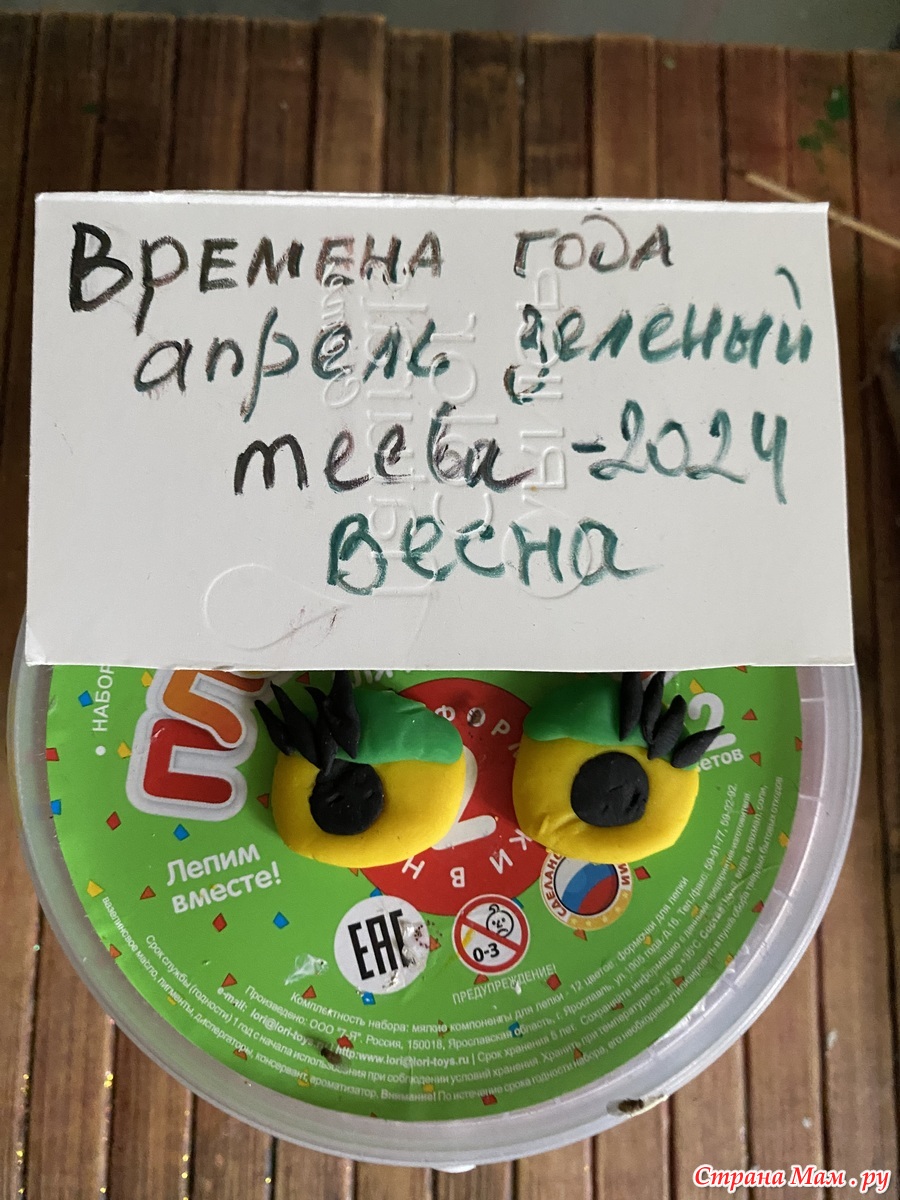 Времена года
апрель зеленый
теева -2024
весна
• НАБОР
12
цветов
ФОРМ
Лепим
вместе!
СДЕЛАНО
EAC
0-3
ПРЕДУПРЕЖДЕНИЕ!
Комплектность набора: мягкие компоненты для лепки - 12 цветов, формочки для лепки
Произведено: ООО "7-Я". Россия, 150018, Ярославская область, г. Ярославль, ул. 1905 года, д.15. Тел./факс: 69-91-77, 69-92-92.
e-mail: lori@lori-toys.ru | http:www.lori@lori-toys.ru | Срок хранения 5 лет.
Срок службы (годности) 1 год с начала использования при соблюдении условий хранения.
вазелиновое масло, пигменты, диспергаторы, консервант, ароматизатор. Внимание! По истечение срока годности набора, его необходимо
Страна Мам.ру